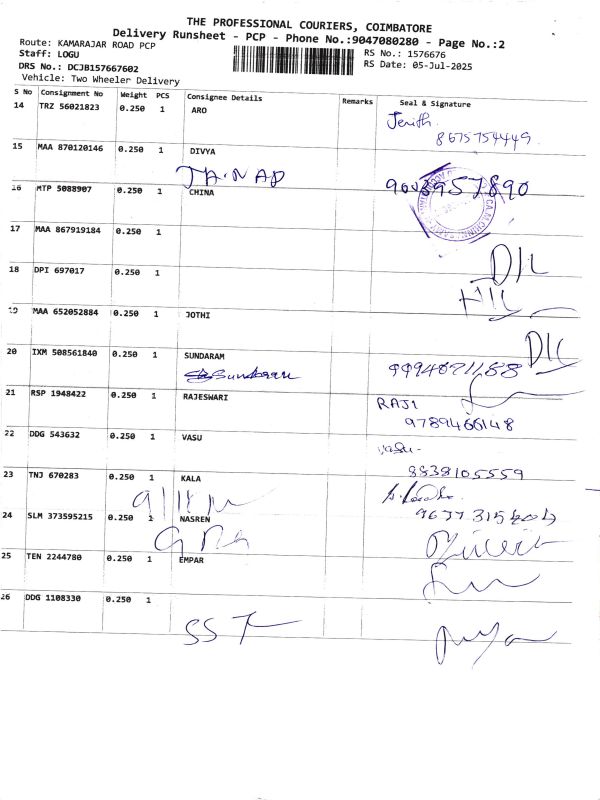 THE PROFESSIONAL COURIERS, COIMBATORE
Delivery Runsheet - PCP - Phone No.:9047080280 - Page No.:2
Route: KAMARAJAR ROAD PCP
RS No.: 1576676
Staff: LOGU
RS Date: 05-Jul-2025
DRS No.: DCJB157667602
Vehicle: Two Wheeler Delivery
S No Consignment No Weight PCS Consignee Details Remarks Seal & Signature
14 TRZ 56021823 0.250 1 ARO
Jenith
8675754449
15 MAA 870120146 0.250 1 DIVYA
16 MTP 5088907 0.250 1 CHINA
17 MAA 867919184 0.250 1
18 DPI 697017 0.250 1
19 MAA 652052884 0.250 1 JOTHI
20 IXM 508561840 0.250 1 SUNDARAM
Sundaram
21 RSP 1948422 0.250 1 RAJESWARI
RAJI
9789466148
22 DDG 543632 0.250 1 VASU
Vasu
8838105559
23 TNJ 670283 0.250 1 KALA
24 SLM 373595215 0.250 1 NASREN
25 TEN 2244780 0.250 1 EMPAR
26 DDG 1108330 0.250 1